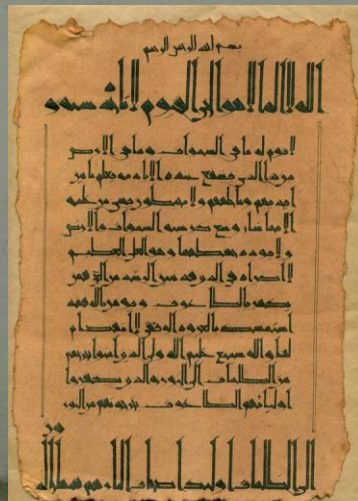 بسم الله الرحمن الرحيم
الله لا اله الا هو الحي القيوم لا تأخذه سنة و
لا نوم له ما في السموات وما في الارض
من ذا الذي يشفع عنده الا باذنه يعلم ما بين
ايديهم وما خلفهم ولا يحيطون بشئ من علمه
الا بما شاء وسع كرسيه السموات والارض
ولا يؤده حفظهما وهو العلي العظيم
لا اكراه في الدين قد تبين الرشد من الغي فمن
يكفر بالطاغوت ويؤمن بالله فقد
استمسك بالعروة الوثقى لا انفصام
لها والله سميع عليم الله ولي الذين آمنوا يخرجهم
من الظلمات الى النور والذين كفروا
اولياؤهم الطاغوت يخرجونهم من النور
الى الظلمات اولئك اصحاب النار هم فيها خالدون